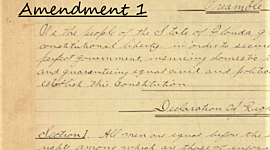 Amendment 1
Preamble
We the people of the State of Florida, g
constitutional liberty in order to secure
perfect government, insuring domestic
and guaranteeing equal civil and politic
establish this Constitution.
Declaration of Rights
Section 1. All men are equal before the
rights among which are those of enjoy